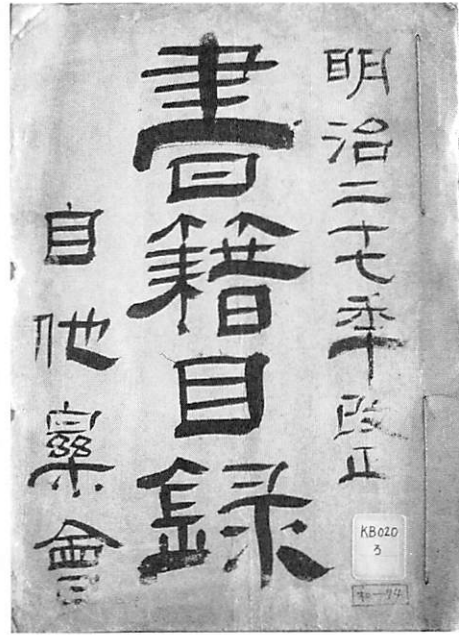 明治二十七秊改正
書籍目録
自他樂會
KB020
3